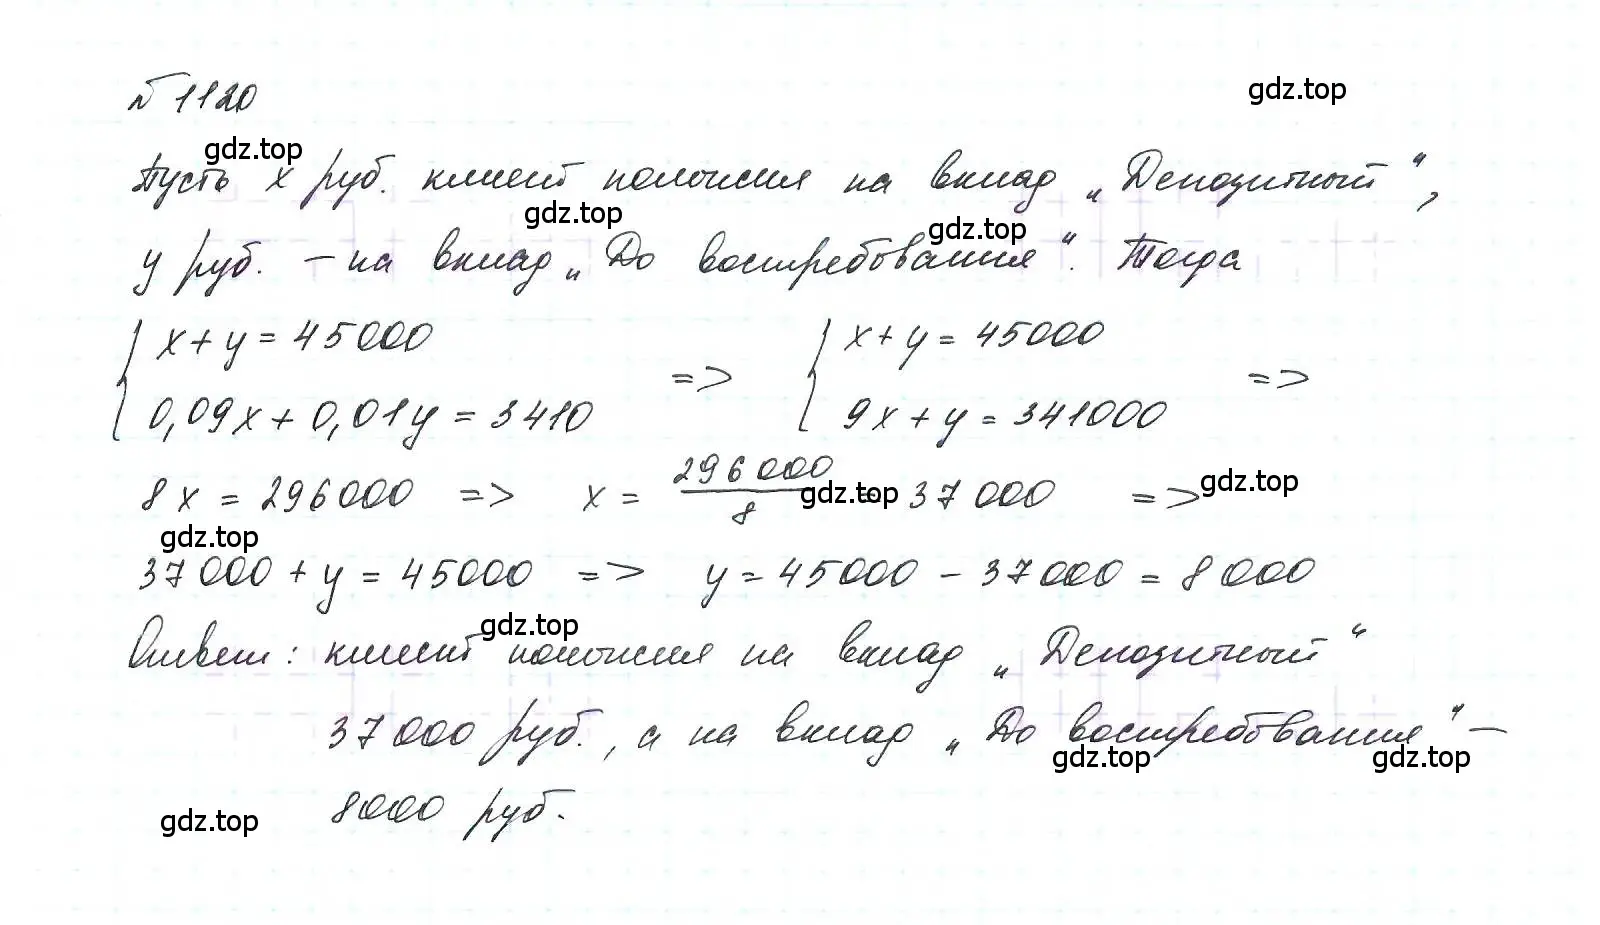 № 1120
gdz.top
gdz.top
Пусть x руб. клиент положил на вклад „Депозитный“,
gdz.top
gdz.top
y руб. – на вклад „До востребования“. Тогда
{ x + y = 45000
0,09x + 0,01y = 3410 => { x + y = 45000
9x + y = 341000 =>
8x = 296000 => x = 296000/8 = 37000 =>
gdz.top
gdz.top
gdz.top
37000 + y = 45000 => y = 45000 – 37000 = 8000
gdz.top
Ответ: клиент положил на вклад „Депозитный“
37000 руб., а на вклад „До востребования“ –
gdz.top
gdz.top
8000 руб.
gdz.top